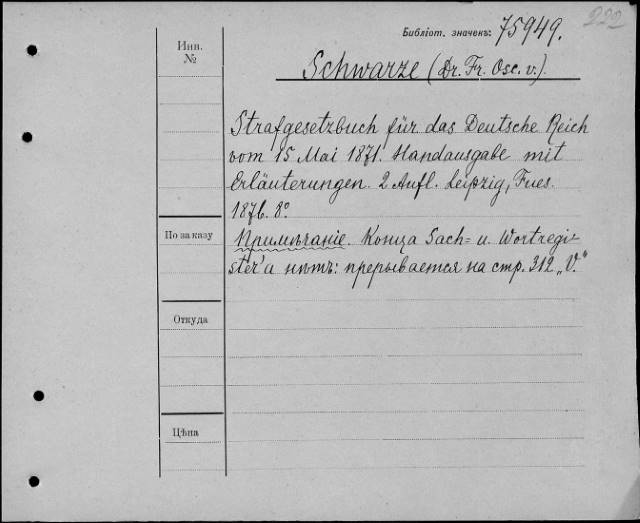 222
Библіот. значекъ: 75949.
Инв.
№
Schwarze (Dr. Fr. Osc. v.).
Strafgesetzbuch für das Deutsche Reich
vom 15 Mai 1871. Handausgabe mit
Erläuterungen. 2 Aufl. Leipzig, Fues.
1876. 8º
По заказу
Примѣчаніе. Конца Sach= u. Wortregi=
ster'а нѣтъ: прерывается на стр. 312 „V."
Откуда
Цѣна